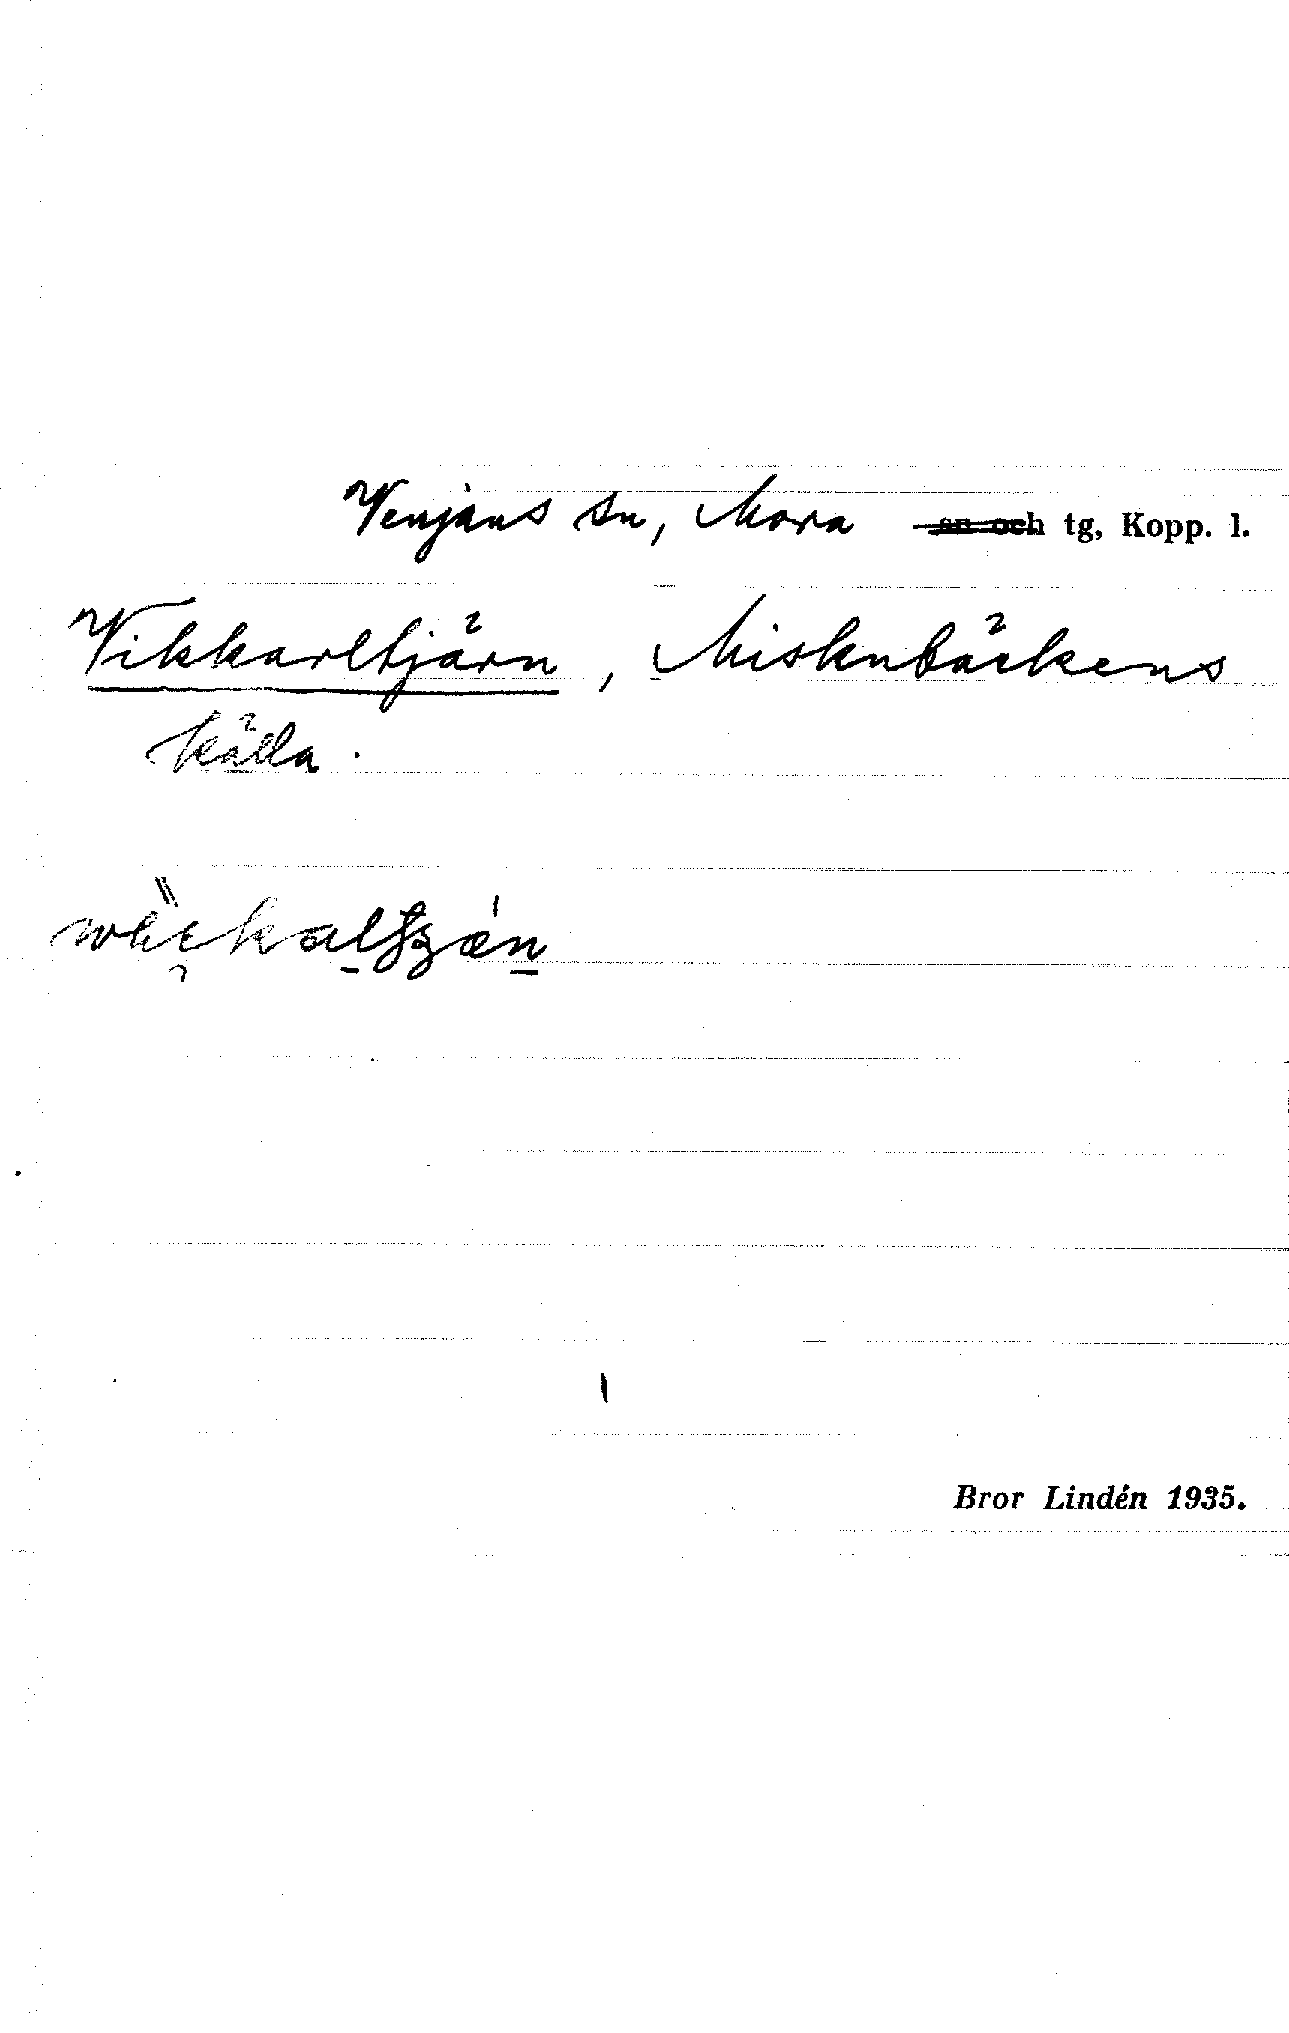 Venjans sn, Mora ~~sn och~~ tg, Kopp. l.
Vikkarltjärn, Misknbäckens
källa.
Bror Lindén 1935.